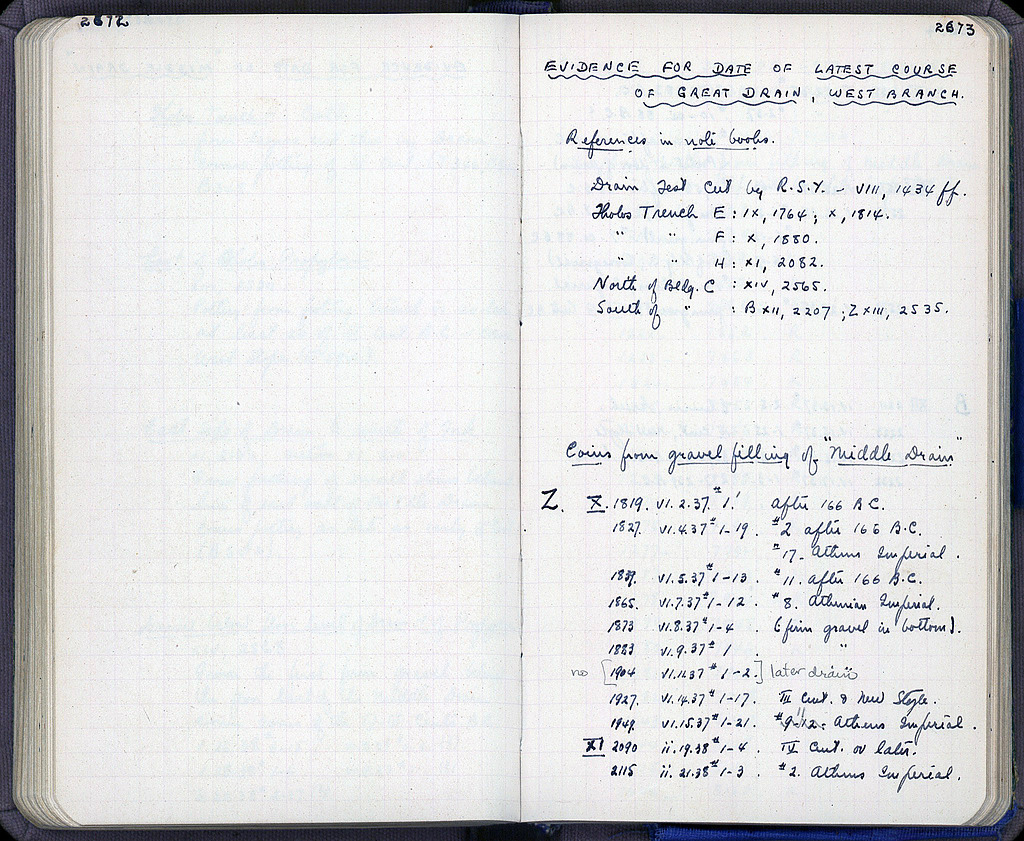 2672
2673
EVIDENCE FOR DATE OF LATEST COURSE
OF GREAT DRAIN, WEST BRANCH.
References in note books.
Drain Test Cut by R.S.Y. - VIII, 1434 ff.
Tholos Trench E: IX, 1764; X, 1814.
" " F: X, 1880.
" " H: XI, 2082.
North of Bldg. C : XIV, 2565.
South of " : B XII, 2207; Z XIII, 2535.
Coins from gravel filling of "Middle Drain"
Z. X. 1819. VI.2.37. #1. after 166 B.C.
1827. VI.4.37 #1-19. #2 after 166 B.C.
#17. Athens Imperial.
1839. VI.5.37 #1-13. #11. after 166 B.C.
1865. VI.7.37 #1-12. #8. Athenian Imperial.
1873 VI.8.37 #1-4. (firm gravel in bottom).
1883 VI.9.37 #1 "
no [1904 VI.11.37 #1-2.] later drain
1927. VI.14.37 #1-17. III Cent. & New Style.
1949. VI.15.37 #1-21. Athens Imperial.
XI 2090 ii.19.38 #1-4. IV Cent. or later.
2115 ii.21.38 #1-3. #2. Athens Imperial.